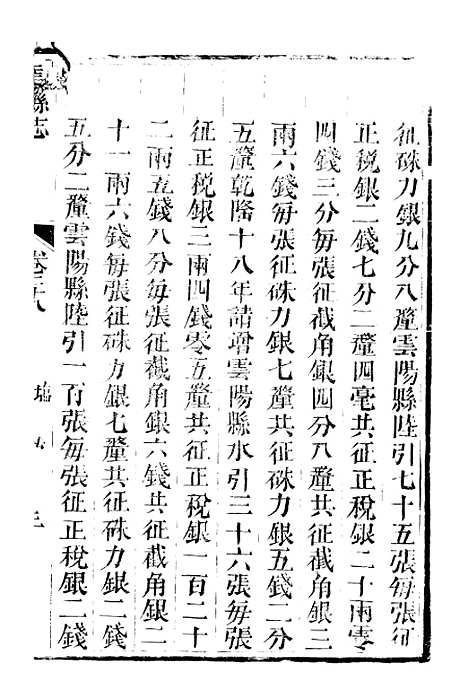 征硃力銀九分八釐雲陽縣陸引七十五張每張征
正税銀二錢七分二釐四毫共征正税銀二十兩零
四錢三分每張征截角銀四分八釐共征截角銀三
兩六錢每張征硃力銀七釐共征硃力銀五錢二分
五釐乾隆十八年請增雲陽縣水引三十六張每張
征正税銀三兩四錢零五釐共征正税銀一百二十
二兩五錢八分每張征截角銀六錢共征截角銀二
十一兩六錢每張征硃力銀七釐共征硃力銀二錢
五分二釐雲陽縣陸引一百張每張征正税銀二錢
縣志
卷三十八
三